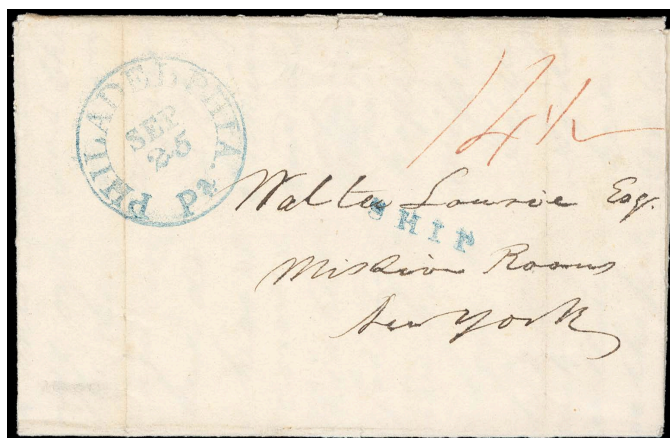 PHILADELPHIA Pa
SEP
25
14½
Walter Lowrie Esq.
SHIP
Mission Rooms
New York